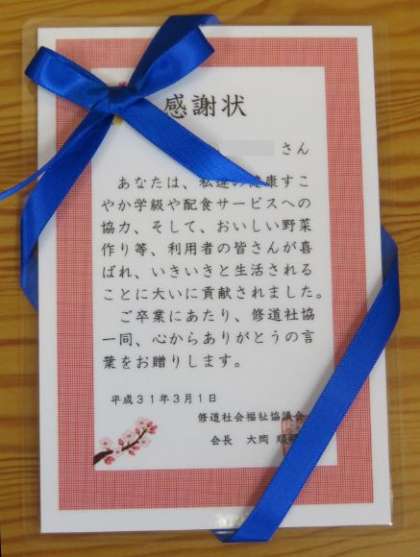 感謝状
さん
あなたは、私達の健康すこ
やか学級や配食サービスへの
協力、そして、おいしい野菜
作り等、利用者の皆さんが喜
ばれ、いきいきと生活される
ことに大いに貢献されました。
ご卒業にあたり、修道社協
一同、心からありがとうの言
葉をお贈りします。
平成31年3月1日
修道社会福祉協議会
会長 大岡